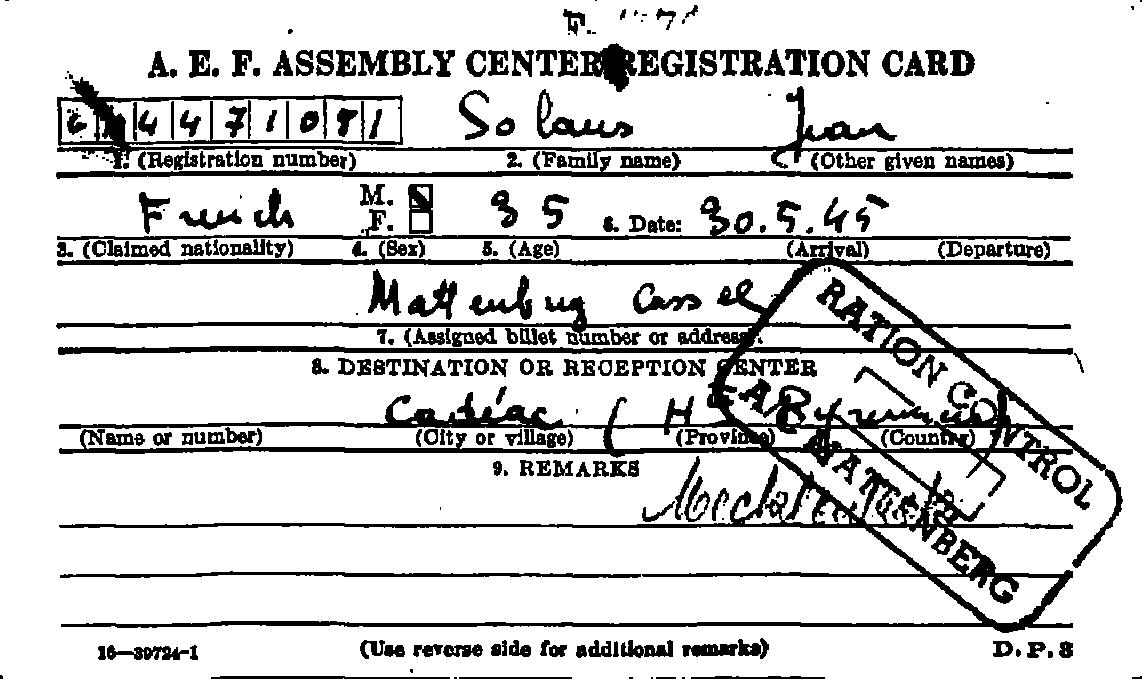 A. E. F. ASSEMBLY CENTER REGISTRATION CARD
4471081 Solaus Jean
1. (Registration number) 2. (Family name) (Other given names)
French M. F. 35 6. Date: 30.5.45
3. (Claimed nationality) 4. (Sex) 5. (Age) (Arrival) (Departure)
Mattenbug Cassel
7. (Assigned billet number or address)
8. DESTINATION OR RECEPTION CENTER
Cadéac (H
(Name or number) (City or village) (Province) (Country)
9. REMARKS
RATION CONTROL
MATTENBERG
16—39724-1 (Use reverse side for additional remarks) D.P.3